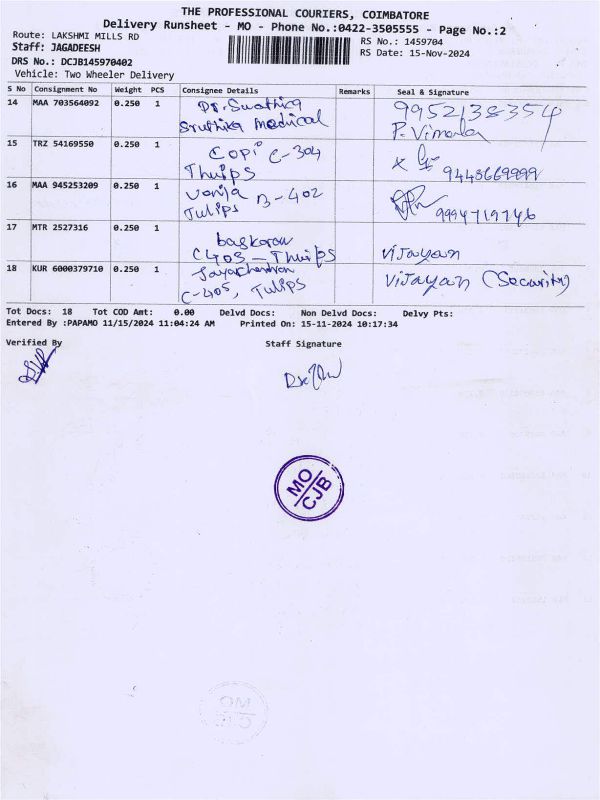 THE PROFESSIONAL COURIERS, COIMBATORE
Delivery Runsheet - MO - Phone No.:0422-3505555 - Page No.:2
Route: LAKSHMI MILLS RD
RS No.: 1459704
Staff: JAGADEESH
RS Date: 15-Nov-2024
DRS No.: DCJB145970402
Vehicle: Two Wheeler Delivery
S No Consignment No Weight PCS Consignee Details Remarks Seal & Signature
14 MAA 703564092 0.250 1 Dr. Swathiga 9952138354
Sruthiga Medical P. Vimala
15 TRZ 54169550 0.250 1 Copi C-304
Thulps 9448669999
16 MAA 945253209 0.250 1 vanja B-402
Tulips 9994719746
17 MTR 2527316 0.250 1 baskaran
C403 - Thulps Vijayan
18 KUR 6000379710 0.250 1 Jayachandran Vijayan (Security)
C-405, Tulips
Tot Docs: 18 Tot COD Amt: 0.00 Delvd Docs: Non Delvd Docs: Delvy Pts:
Entered By :PAPAMO 11/15/2024 11:04:24 AM Printed On: 15-11-2024 10:17:34
Verified By Staff Signature
MO
CJB